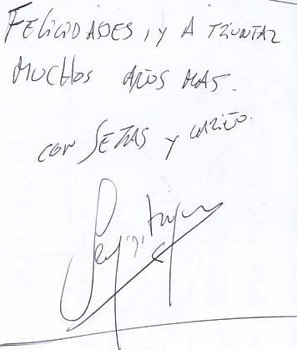 FELICIDADES, ¡Y A TRIUNTAR
MUCHOS AÑOS MAS.
CON SETAS Y CARIÑO.